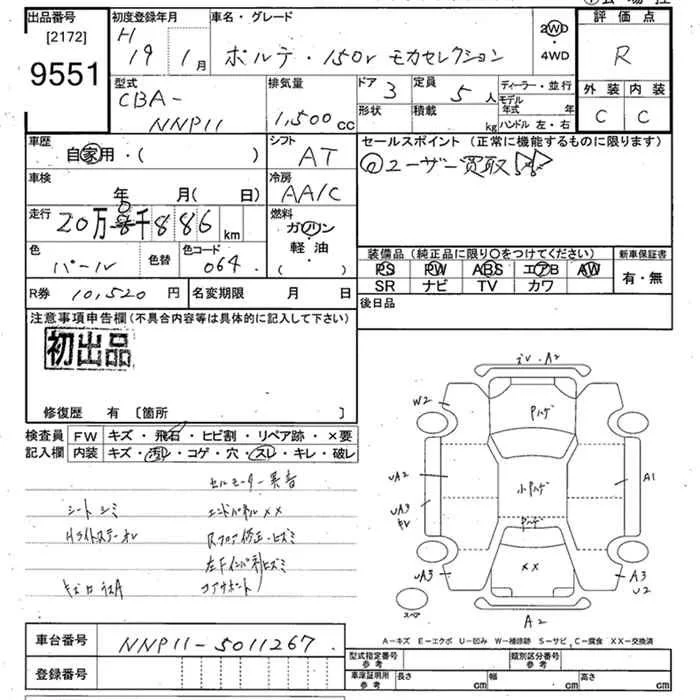 出品番号
[2172]
9551
初度登録年月
H
19・1月
車名・グレード
ポルテ・150r モカセレクション
2WD
・
4WD
評価点
R
型式
CBA-
NNP11
排気量
1,500cc
ドア 3
形状
定員 5人
積載 kg
ディーラー・並行
モデル年式 年
ハンドル 左・右
外装 内装
C C
車歴
自家用・( )
シフト
AT
車検
年 月( 日)
冷房
AA/C
走行
20万 千886km
燃料
ガソリン
・
軽・油
( )
色
パール
色替
色コード
064
R券 10,520円
名変期限 月 日
セールスポイント (正常に機能するものに限ります)
ユーザー買取
装備品 (純正品に限り〇をつけてください)
PS PW ABS エアB AW
SR ナビ TV カワ
新車保証書
有・無
後日品
注意事項申告欄(不具合内容等は具体的に記入して下さい)
初出品
修復歴 有 〔箇所 〕
検査員記入欄
FW キズ・飛石・ヒビ割・リペア跡・×要
内装 キズ・汚レ・コゲ・穴・スレ・キレ・破レ
セルモーター異音
シートシミ エンドパネル××
Rフロア修正・ヒズミ
コアサポート
A2
W2
Pハゲ
UA2
小Pハゲ
A1
UA3
Pハゲ
UA3
××
A3
U2
スペア
A2
A-キズ E-エクボ U-凹み W-補修跡 S-サビ C-腐食 XX-交換済
車台番号 NNP11-5011267
登録番号
型式指定番号
参考
類別区分番号
参考
車庫証明用
参考
長さ cm
幅 cm
高さ cm